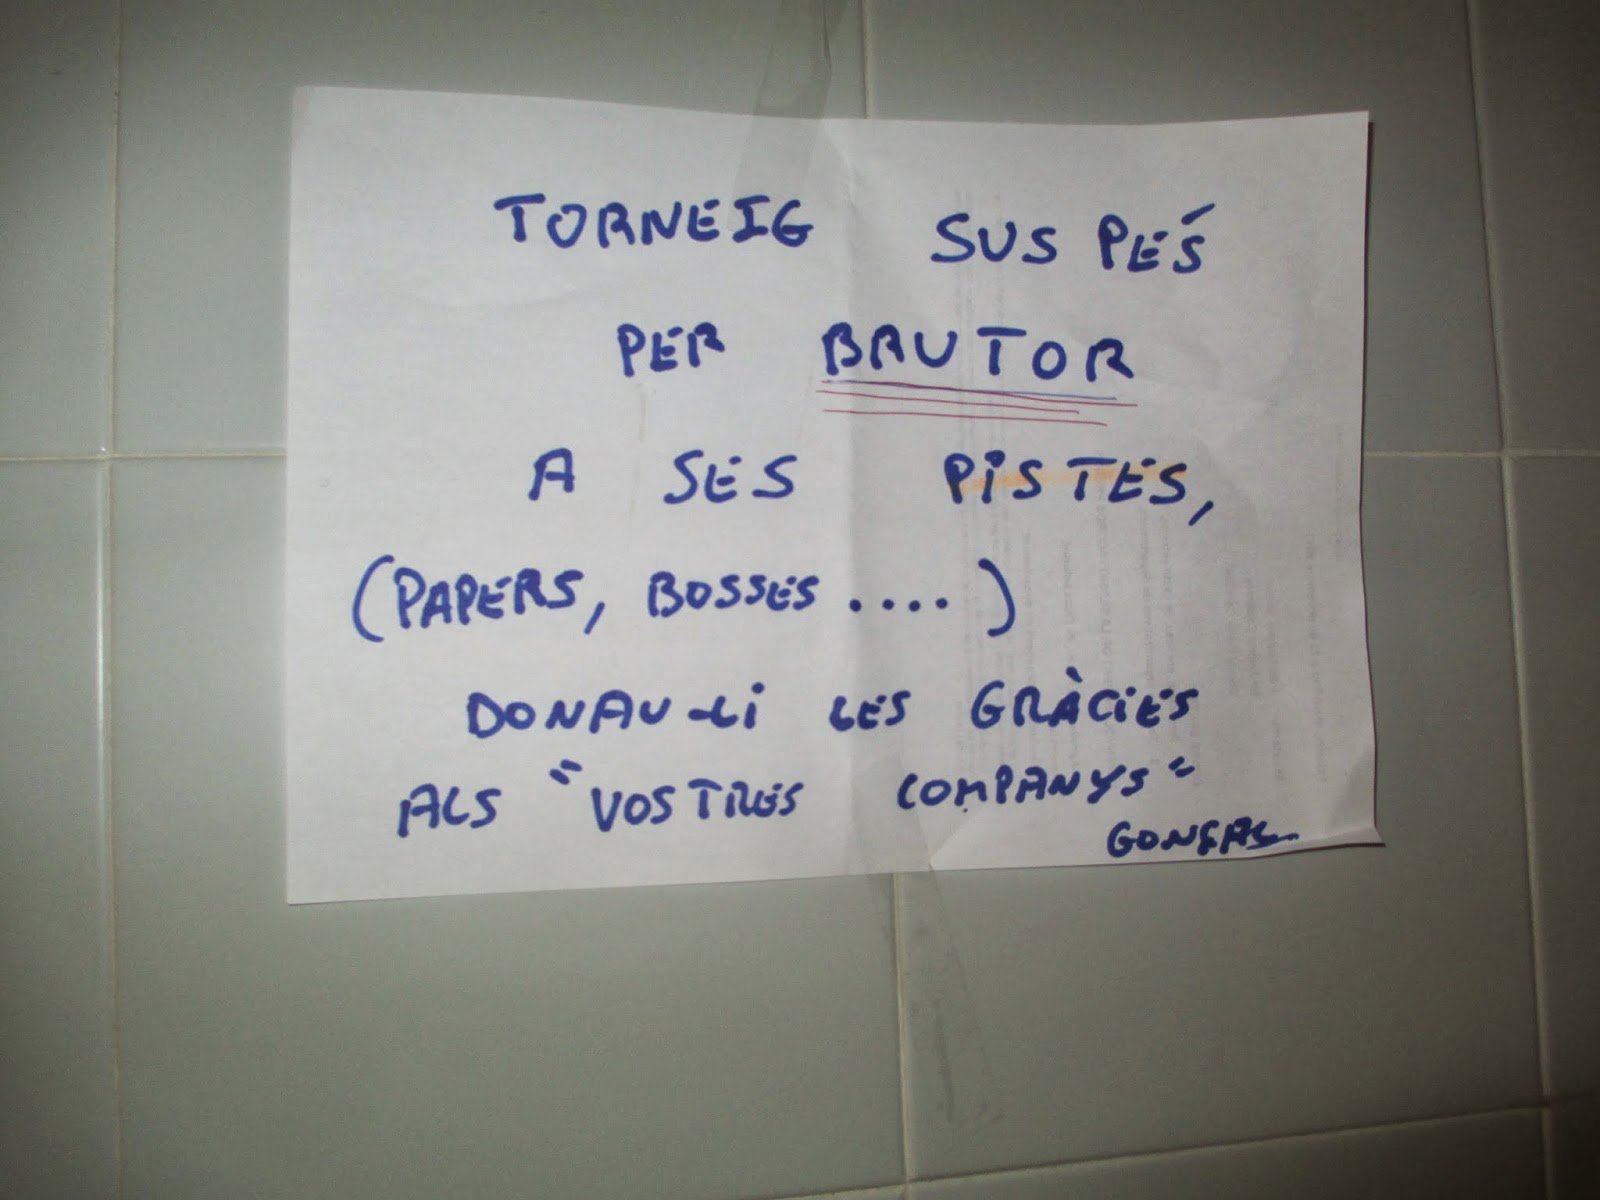 TORNEIG SUSPÉS
PER BRUTOR
A SES PISTES,
(PAPERS, BOSSES ....)
DONAU-LI LES GRÀCIES
ALS "VOSTRES COMPANYS"
GONÇAL